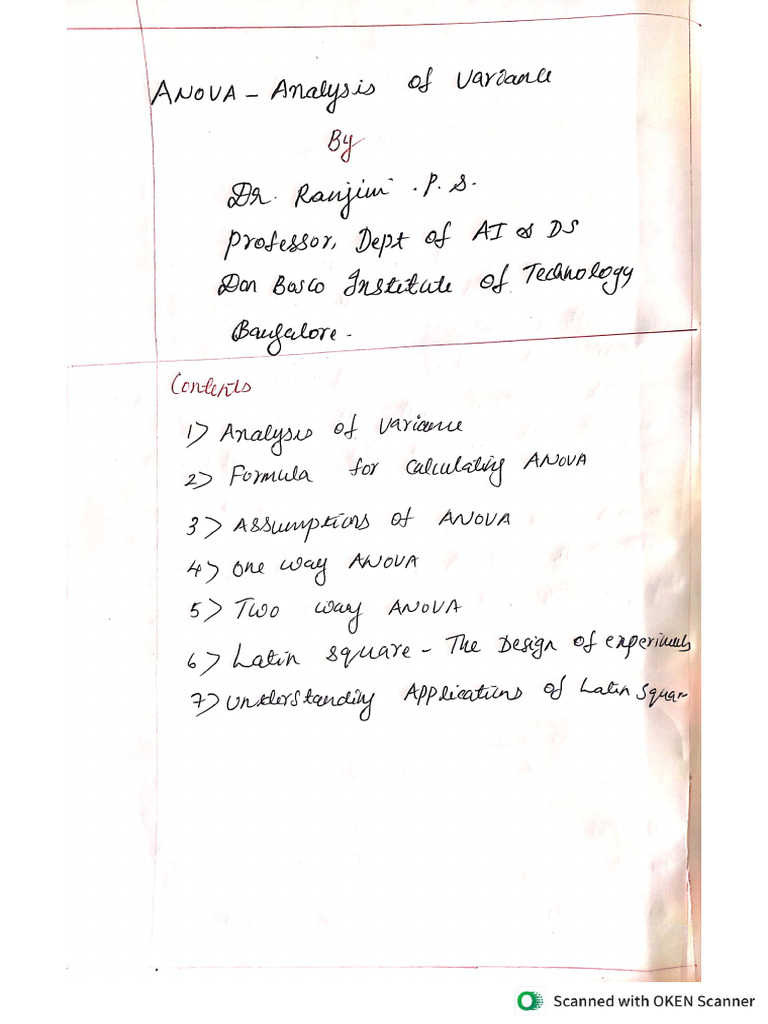 ANOVA - Analysis of Variance
By
Dr. Ranjini .P. S.
Professor, Dept of AI & DS
Don Bosco Institute of Technology
Bangalore.
Contents
1) Analysis of Variance
2) Formula for calculating ANOVA
3) Assumptions of ANOVA
4) One way ANOVA
5) Two way ANOVA
6) Latin square - The Design of experiments
7) Understanding Applications of Latin Squar
Scanned with OKEN Scanner